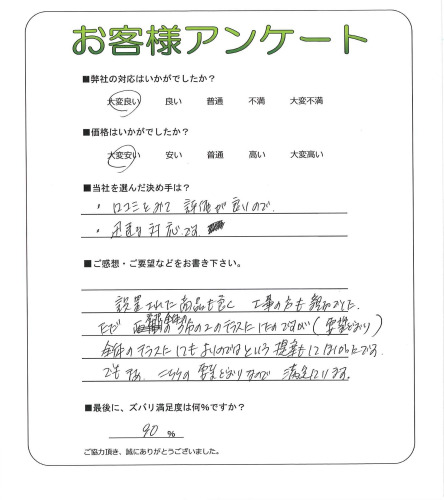 お客様アンケート
■弊社の対応はいかがでしたか?
大変良い 良い 普通 不満 大変不満
■価格はいかがでしたか?
大変安い 安い 普通 高い 大変高い
■当社を選んだ決め手は?
・口コミをみて 評価が良いので。
・迅速な対応です
■ご感想・ご要望などをお書き下さい。
設置された商品も良く 工事の方も親切でした。
ただ 全体の 3分の2のテラスにしたのですが(要望どおり)
全体のテラスにしてもよいのではという提案もしてほしかったです。
でもまあ、こちらの要望どおりなので 満足しています。
■最後に、ズバリ満足度は何%ですか?
90 %
ご協力頂き、誠にありがとうございました。